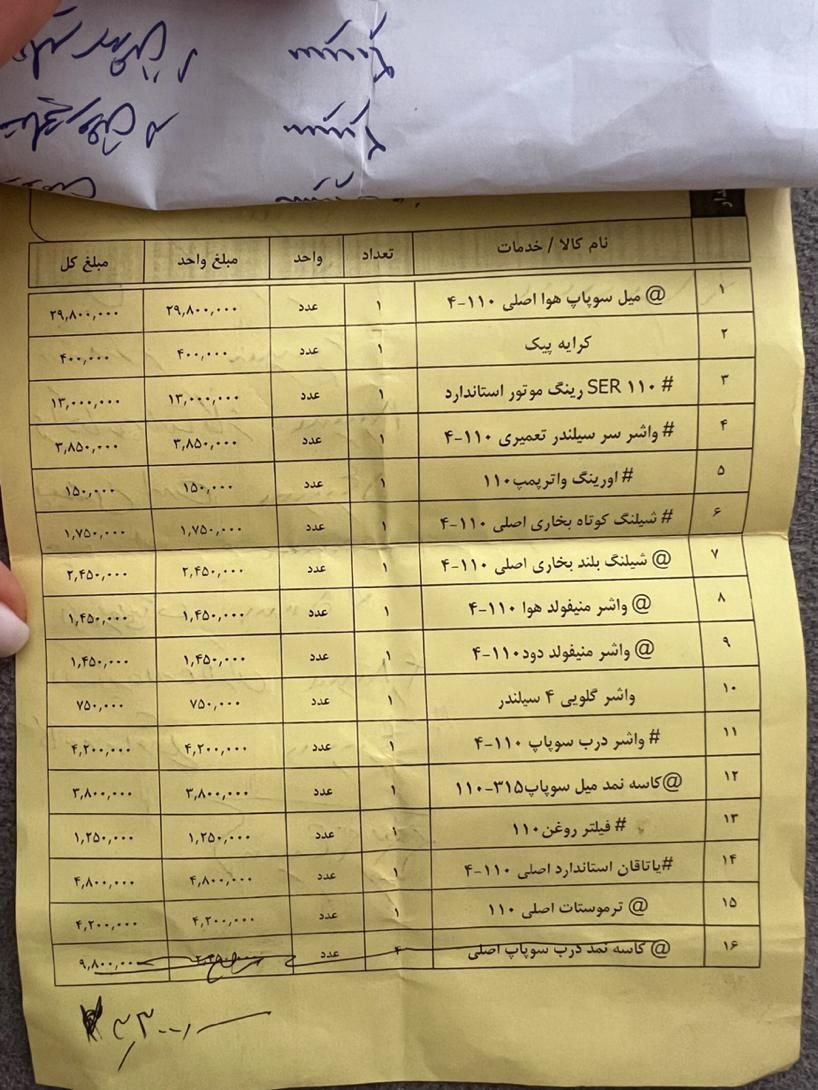 نام کالا / خدمات تعداد واحد مبلغ واحد مبلغ کل
۱ @ میل سوپاپ هوا اصلی ۱۱۰-۴ ۱ عدد ۲۹,۸۰۰,۰۰۰ ۲۹,۸۰۰,۰۰۰
۲ کرایه پیک ۱ عدد ۴۰۰,۰۰۰ ۴۰۰,۰۰۰
۳ # SER ۱۱۰ رینگ موتور استاندارد ۱ عدد ۱۳,۰۰۰,۰۰۰ ۱۳,۰۰۰,۰۰۰
۴ # واشر سر سیلندر تعمیری ۱۱۰-۴ ۱ عدد ۳,۸۵۰,۰۰۰ ۳,۸۵۰,۰۰۰
۵ # اورینگ واترپمپ۱۱۰ ۱ عدد ۱۵۰,۰۰۰ ۱۵۰,۰۰۰
۶ # شیلنگ کوتاه بخاری اصلی ۱۱۰-۴ ۱ عدد ۱,۷۵۰,۰۰۰ ۱,۷۵۰,۰۰۰
۷ @ شیلنگ بلند بخاری اصلی ۱۱۰-۴ ۱ عدد ۲,۴۵۰,۰۰۰ ۲,۴۵۰,۰۰۰
۸ @ واشر منیفولد هوا ۱۱۰-۴ ۱ عدد ۱,۴۵۰,۰۰۰ ۱,۴۵۰,۰۰۰
۹ @ واشر منیفولد دود۱۱۰-۴ ۱ عدد ۱,۴۵۰,۰۰۰ ۱,۴۵۰,۰۰۰
۱۰ واشر گلویی ۴ سیلندر ۱ عدد ۷۵۰,۰۰۰ ۷۵۰,۰۰۰
۱۱ # واشر درب سوپاپ ۱۱۰-۴ ۱ عدد ۴,۲۰۰,۰۰۰ ۴,۲۰۰,۰۰۰
۱۲ @کاسه نمد میل سوپاپ۳۱۵-۱۱۰ ۱ عدد ۳,۸۰۰,۰۰۰ ۳,۸۰۰,۰۰۰
۱۳ # فیلتر روغن۱۱۰ ۱ عدد ۱,۲۵۰,۰۰۰ ۱,۲۵۰,۰۰۰
۱۴ #یاتاقان استاندارد اصلی ۱۱۰-۴ ۱ عدد ۴,۸۰۰,۰۰۰ ۴,۸۰۰,۰۰۰
۱۵ @ ترموستات اصلی ۱۱۰ ۱ عدد ۴,۲۰۰,۰۰۰ ۴,۲۰۰,۰۰۰
۱۶ @ کاسه نمد درب سوپاپ اصلی ۴ عدد ۹,۸۰۰,۰۰۰